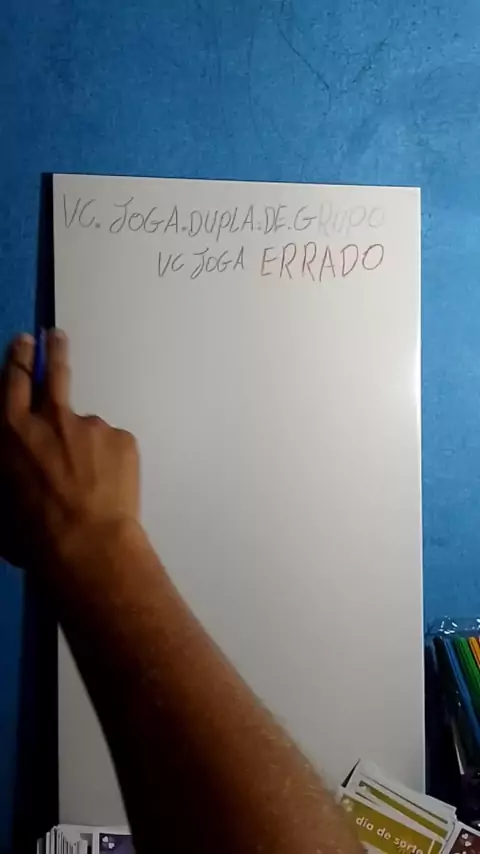 VC. JOGA.DUPLA.DE.GRUPO
VC JOGA ERRADO
dia de sorte